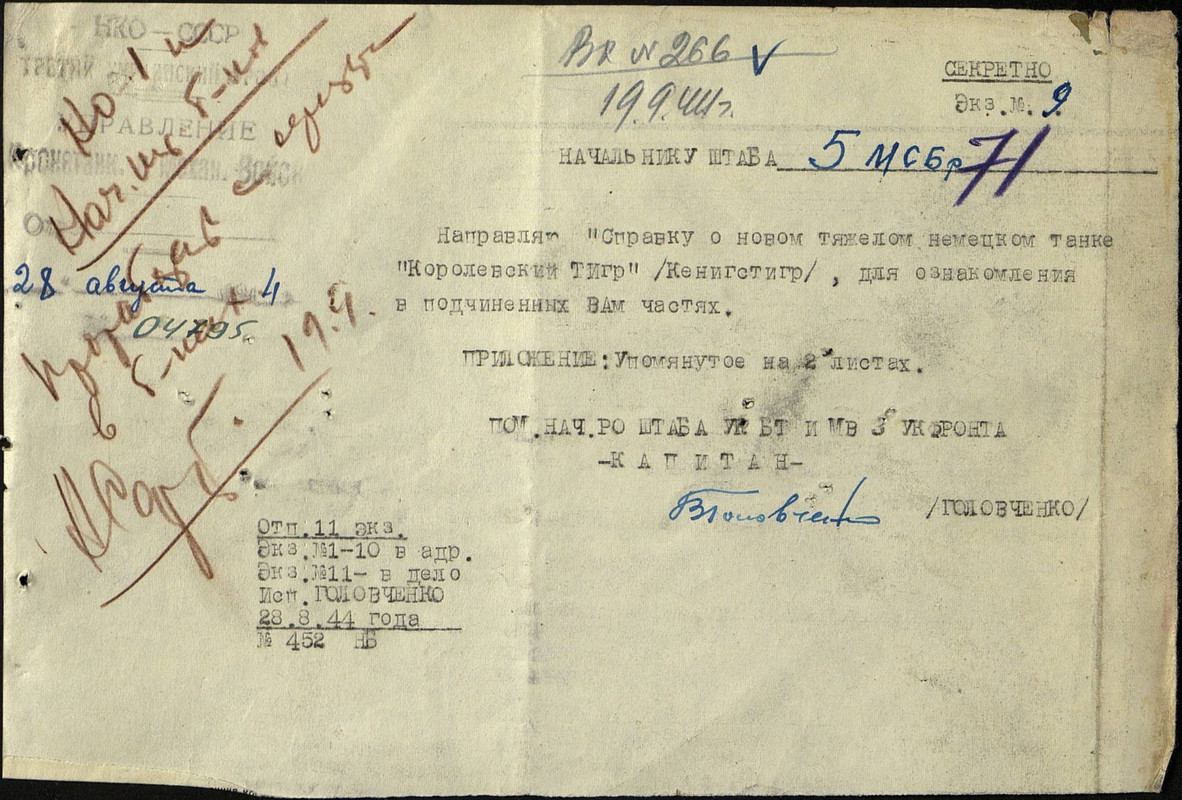 НКО-СССР
ТРЕТИЙ
УПРАВЛЕНИЕ
28 августа 4
04795.
Вх N 266 V
19.9.44г.
СЕКРЕТНО
Экз.№. 9.
НАЧАЛЬНИКУ ШТАБА 5 МСБр 71
Направляю "Справку о новом тяжелом немецком танке
"Королевский ТИгр" /Кенигстигр/, для ознакомления
в подчиненных ВАм частях.
ПРИЛОЖЕНИЕ:Упомянутое на 2 листах.
ПОМ.НАЧ.РО ШТАБА УК БТ И МВ 3 УК ФРОНТА
-КАПИТАН-
/ГОЛОВЧЕНКО/
19.9.
Отп.11 экз.
Экз.№1-10 в адр.
Экз.№11- в дело
Исп.ГОЛОВЧЕНКО
28.8.44 года
№ 452 НБ